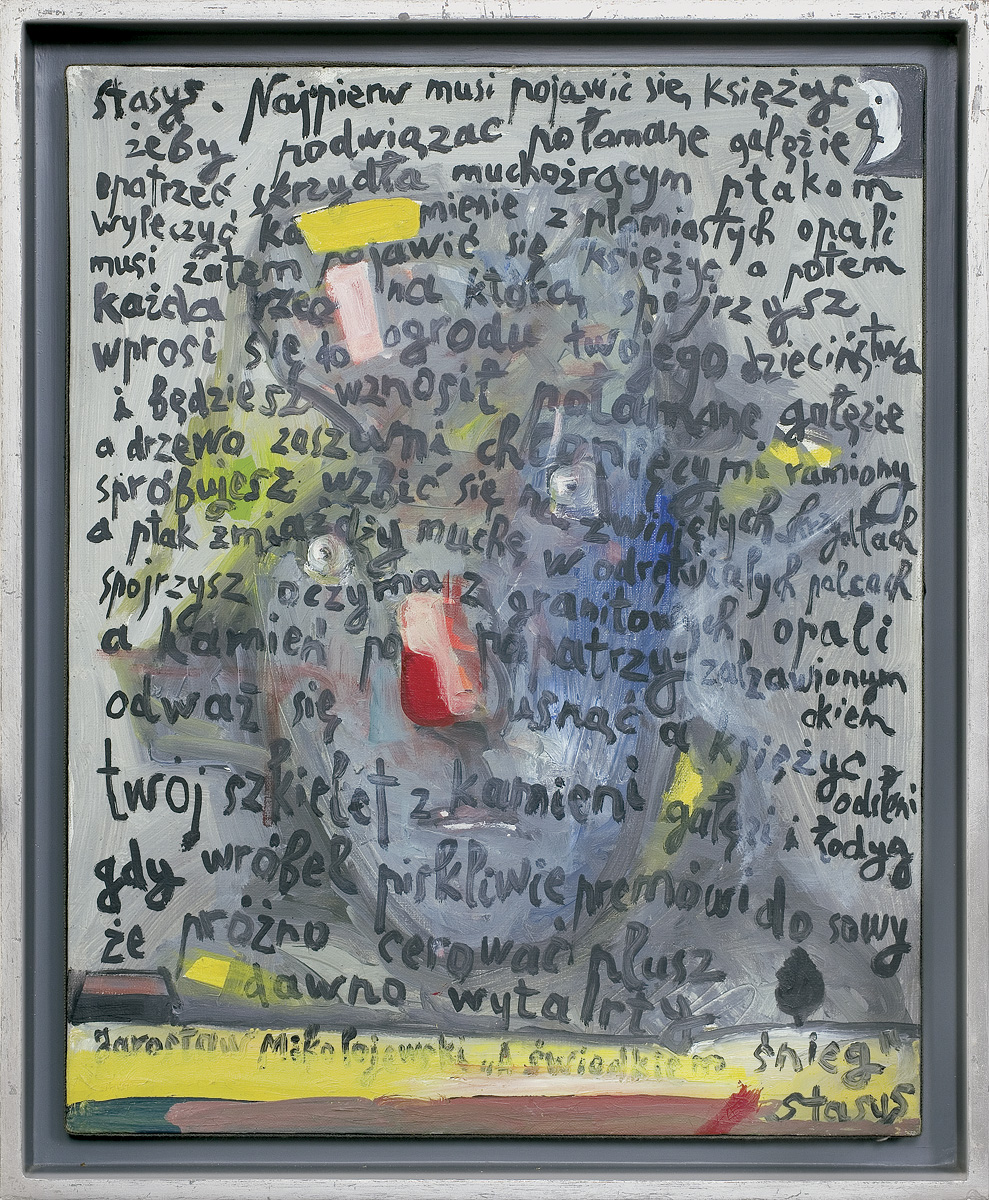 stasys. Najpierw musi pojawić się księżyc
żeby podwiązac połamane gałęzie
opatrzeć skrzydła muchożrącym ptakom
wyleczyć kamienie z płomiastych opali
musi zatem pojawić się księżyc a potem
każda rzecz na którą spojrzysz
wprosi się do ogrodu twojego dzieciństwa
i będziesz wznosił połamane gałęzie
a drzewo zaszumi chłopięcymi ramiony
spróbujesz wzbić się na zwiniętych
a ptak zmiażdży muchę w odrętwiałych palcach
spojrzysz oczyma z granitowych opali
a kamień popatrzy załzawionym
okiem
odważ się usnąć a księżyc
odsłoni
twój szkielet z kamieni gałęzi i łodyg
gdy wróbel piskliwie premówi do sowy
że próżno cerować plusz
dawno wytarty
Jarosław Mikołajewski „A świadkiem śnieg"
stasys